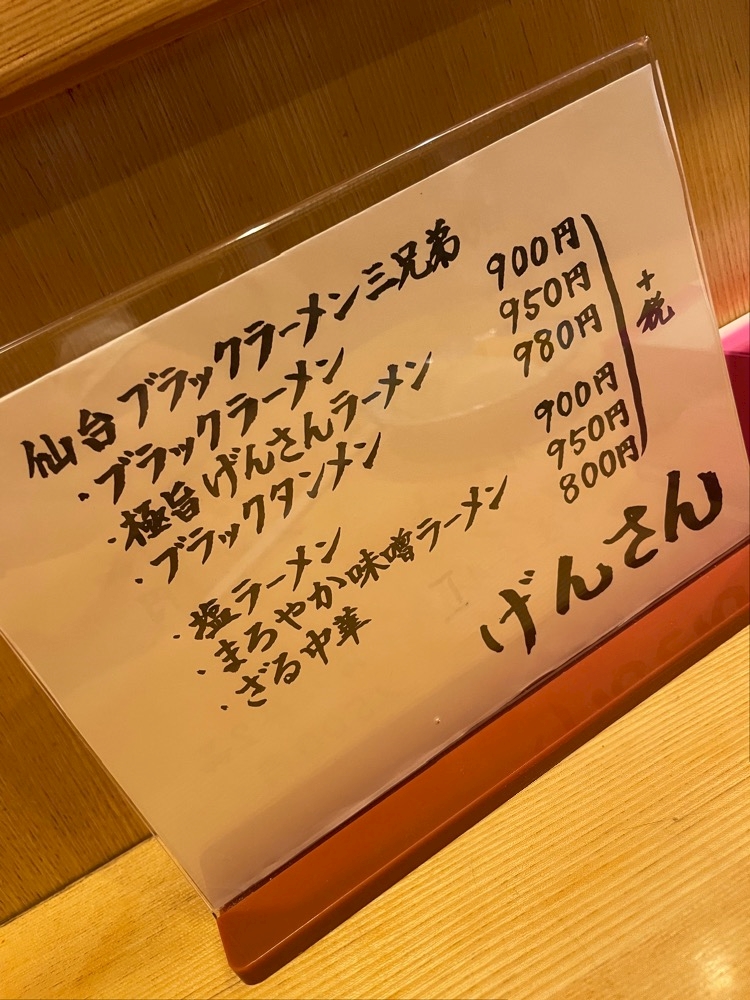 仙台ブラックラーメン三兄弟
・ブラックラーメン 900円
・極旨げんさんラーメン 950円
・ブラックタンメン 980円
+税
・塩ラーメン 900円
・まろやか味噌ラーメン 950円
・ざる中華 800円
げんさん